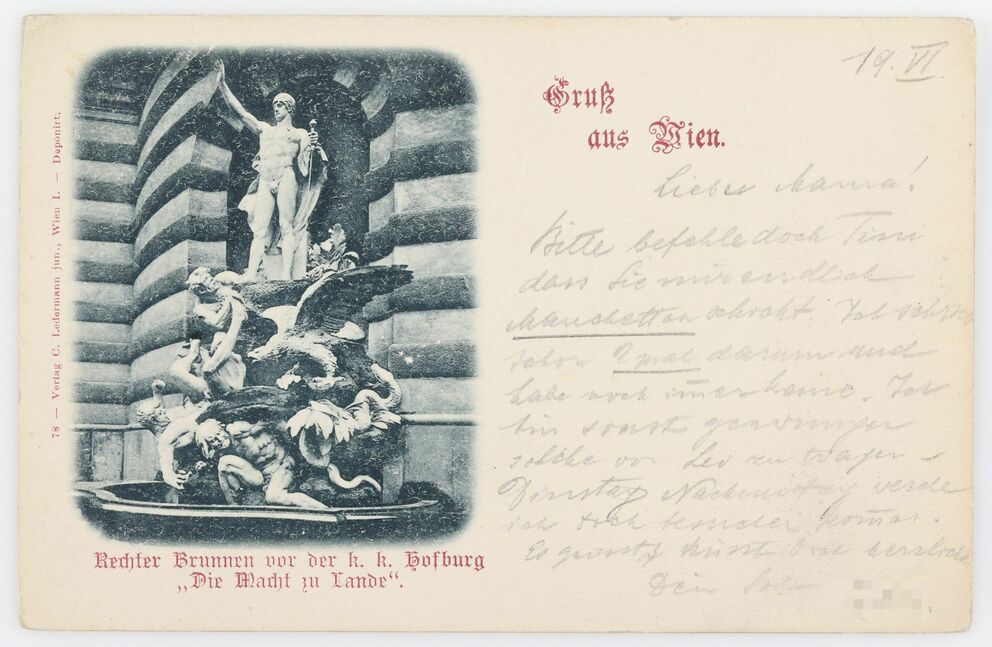 78 — Verlag C. Ledermann jun., Wien I. — Deponirt.
Gruß
aus Wien.
19. VI
Liebe Mama!
Bitte befehle doch Fini
dass Sie mir endlich
Manchetten schickt. Ich schrieb
schon 2 mal darum und
habe noch im̄er keine. Ich
bin sonst gezwungen
solche von Leo zu tragen
Dinstag Nachmittag werde
ich doch kom̄en.
Es grüsst küsst Dich herzlich
Dein
Rechter Brunnen vor der k. k. Hofburg
„Die Macht zu Lande“.